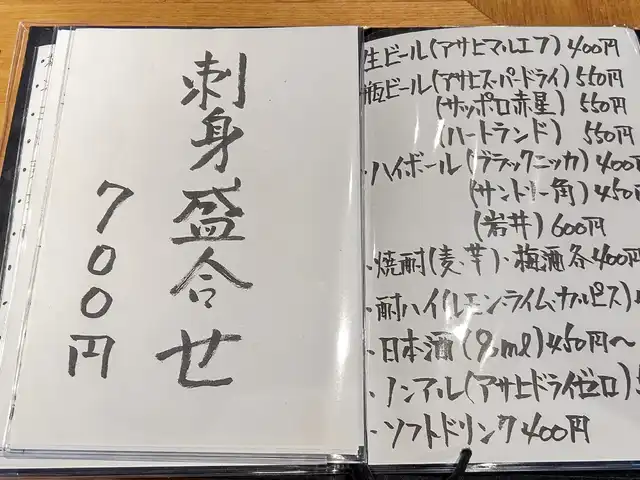 刺身盛合せ
700円
生ビール(アサヒマルエフ)400円
瓶ビール(アサヒスーパードライ)550円
(サッポロ赤星)550円
(ハートランド)550円
・ハイボール(ブラックニッカ)400円
(サントリー角)450円
(岩井)600円
・焼酎(麦、芋)・梅酒各400円
・酎ハイ(レモン、ライム、カルピス)
・日本酒(90ml)450円〜
・ノンアル(アサヒドライゼロ)
・ソフトドリンク400円